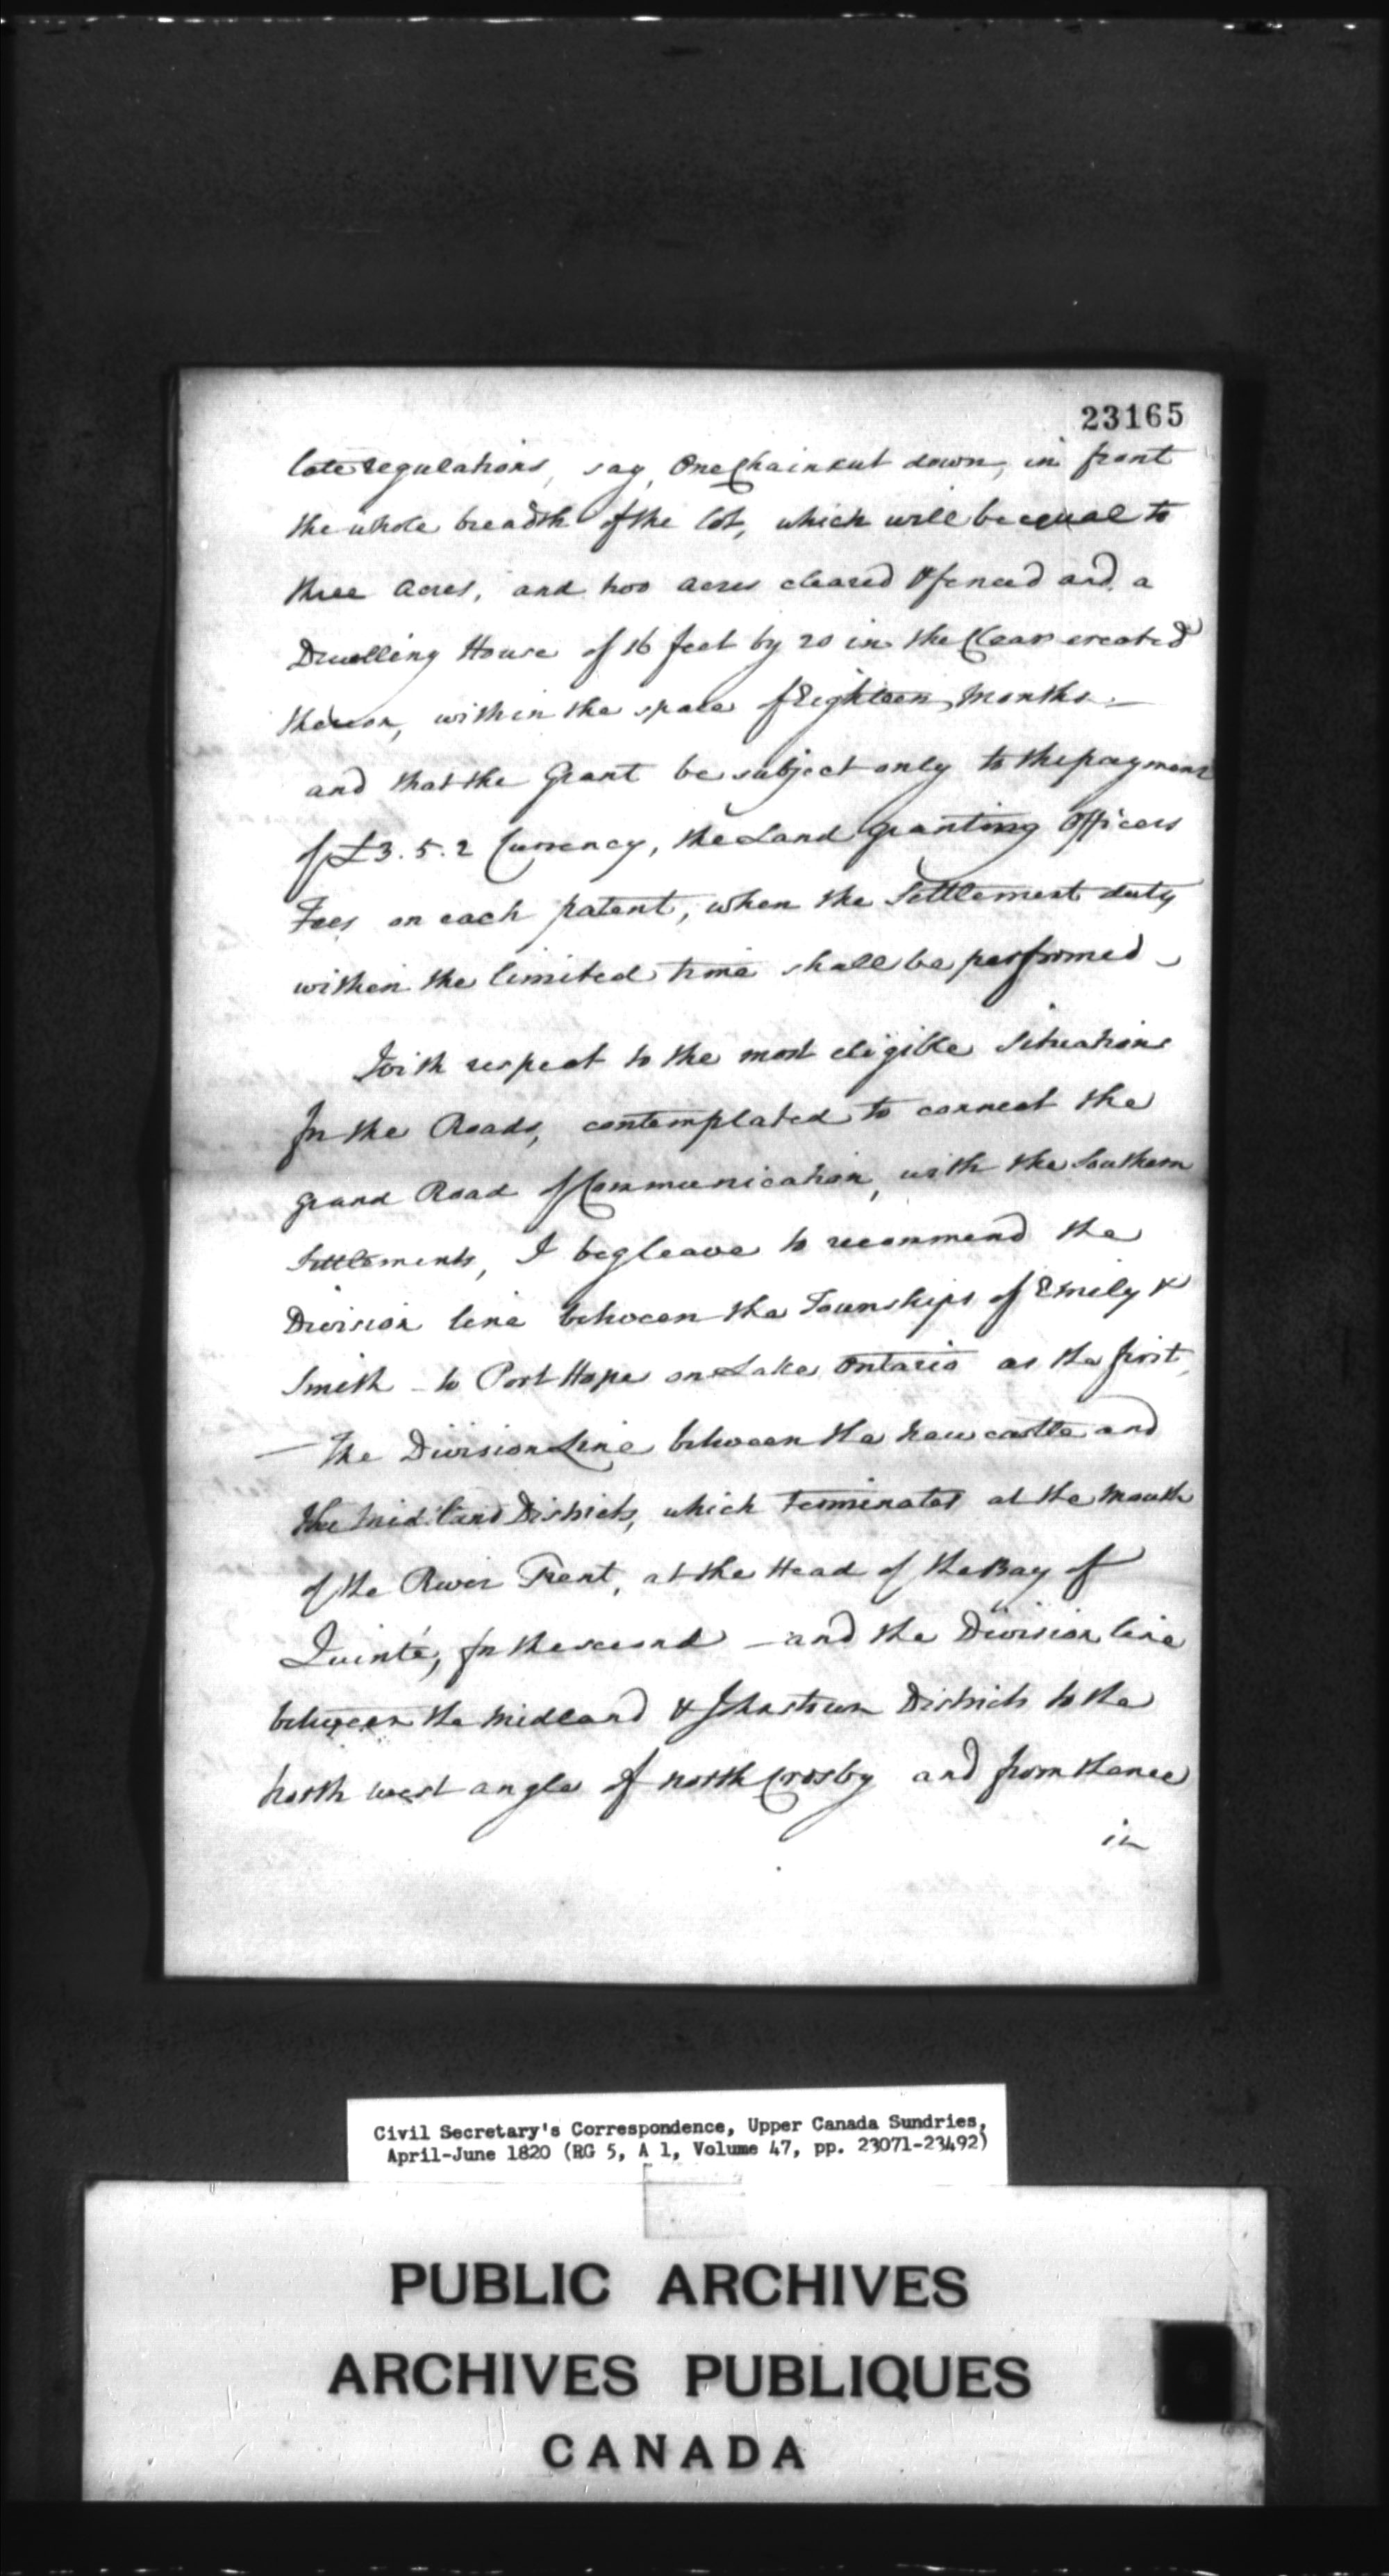 23165
late regulations, say, One Chain cut down, in front
the whole breadth of the lot, which will be equal to
three Acres, and two acres cleared & fenced and a
Dwelling House of 16 feet by 20 in the Clear erected
thereon, within the space of Eighteen Months. —
and that the Grant be subject only to the payment
of £3.5.2 Currency, the Land Granting Officers
Fees on each patent, when the Settlement duty
within the limited time shall be performed —
With respect to the most eligible Situations
for the Roads, contemplated to connect the
Grand Road of Communication, with the Southern
Settlements, I beg leave to recommend the
Division line between the Townships of Emily &
Smith — to Port Hope on Lake Ontario as the first,
— The Division Line between the Newcastle and
the Midland Districts, which terminates at the Mouth
of the River Trent, at the Head of the Bay of
Quinté, for the second — and the Division line
between the Midland & Johnstown Districts to the
North west angle of North Crosby and from thence
in
Civil Secretary's Correspondence, Upper Canada Sundries,
April-June 1820 (RG 5, A 1, Volume 47, pp. 23071-23492)
PUBLIC ARCHIVES
ARCHIVES PUBLIQUES
CANADA